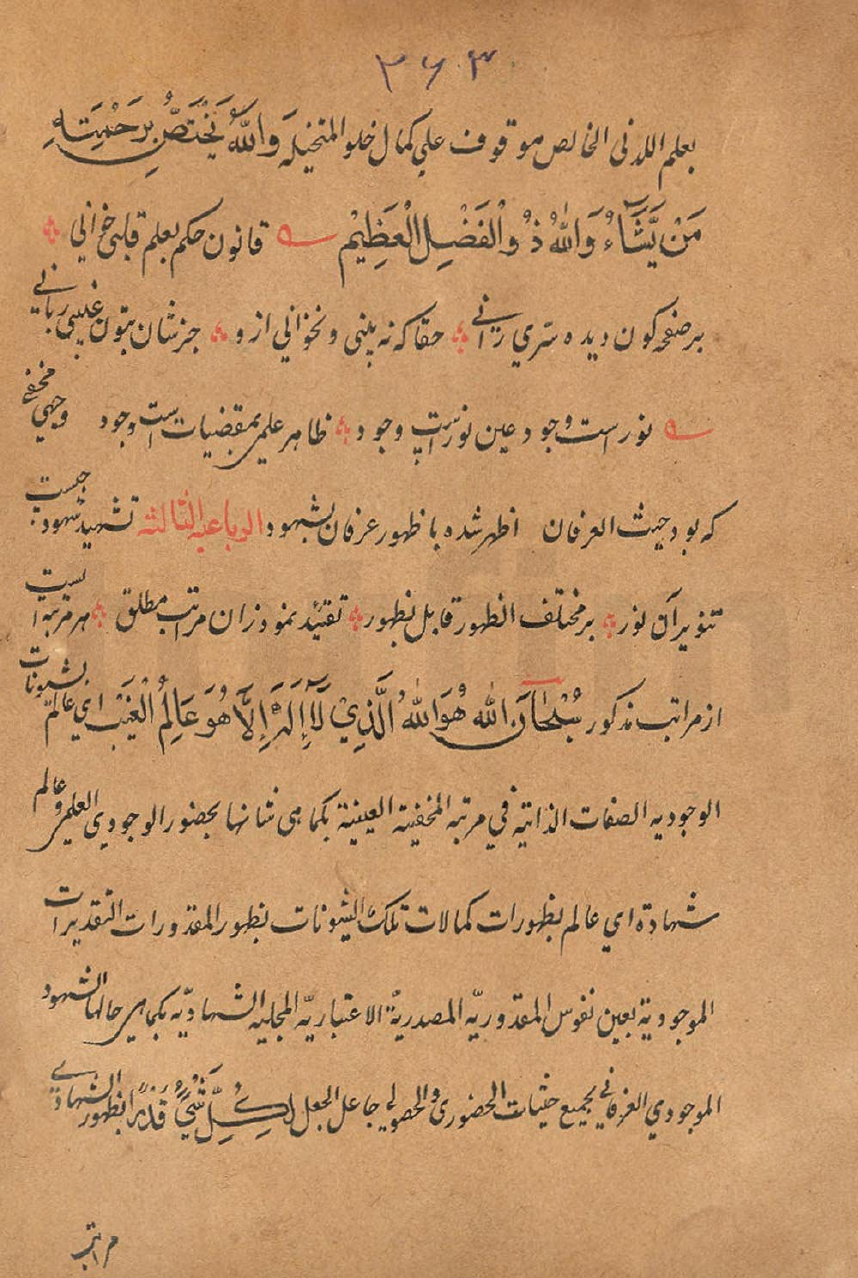 ۳۶۳
بعلم اللدنی الخالص موقوف علی کمال خلو المتخیلة وَاللّٰهُ يَخْتَصُّ بِرَحْمَتِهِ
مَنْ يَّشَآءُ وَاللّٰهُ ذُوالْفَضْلِ الْعَظِيْمِ قانون حکم بعلم قلبی خوانی
بر صفحه کون دیده سری رانی حقا که نه بینی و نخوانی از و جز شان بتون غیبی ربانی
نور است وجود عین نور است وجود ظاهر علمی بمقضیات است وجود وجهی مخفی
که بود حیث العرفان اظهر شده با ظهور عرفان بشهود الرباعیة الثالثه تشهید شهود چیست
تنویر آن نور بر مختلف الظهور قابل بظهور تقئید نمود زان مراتب مطلق هر مرتبه است
از مراتب مذکور سُبْحَانَ اللّٰه هُوَ اللّٰهُ الَّذِيْ لَآ اِلٰهَ اِلَّا هُوَ عَالِمُ الْغَيْبِ ای عالم بشیونات
الوجودیه الصفات الذاتیة فی مرتبه المخفیة العینیة بکماهی شانها بحضور الوجودی العلمی و عالم
شهادة ای عالم بظهورات کمالات تلک الشیونات بظهور المقدورات التقدیرات
الموجودیة بعین نفوس المقدوریّه المصدریّة الاعتباریّه المجلیه الشهادیّه بکماهی حالها الشهود
الموجودی العرفانی بجمیع حیثیات الحضوری والحصولی جاعل الجعل لِكُلِّ شَيْءٍ قَدْرًا بظهور الشهادی
مراتب